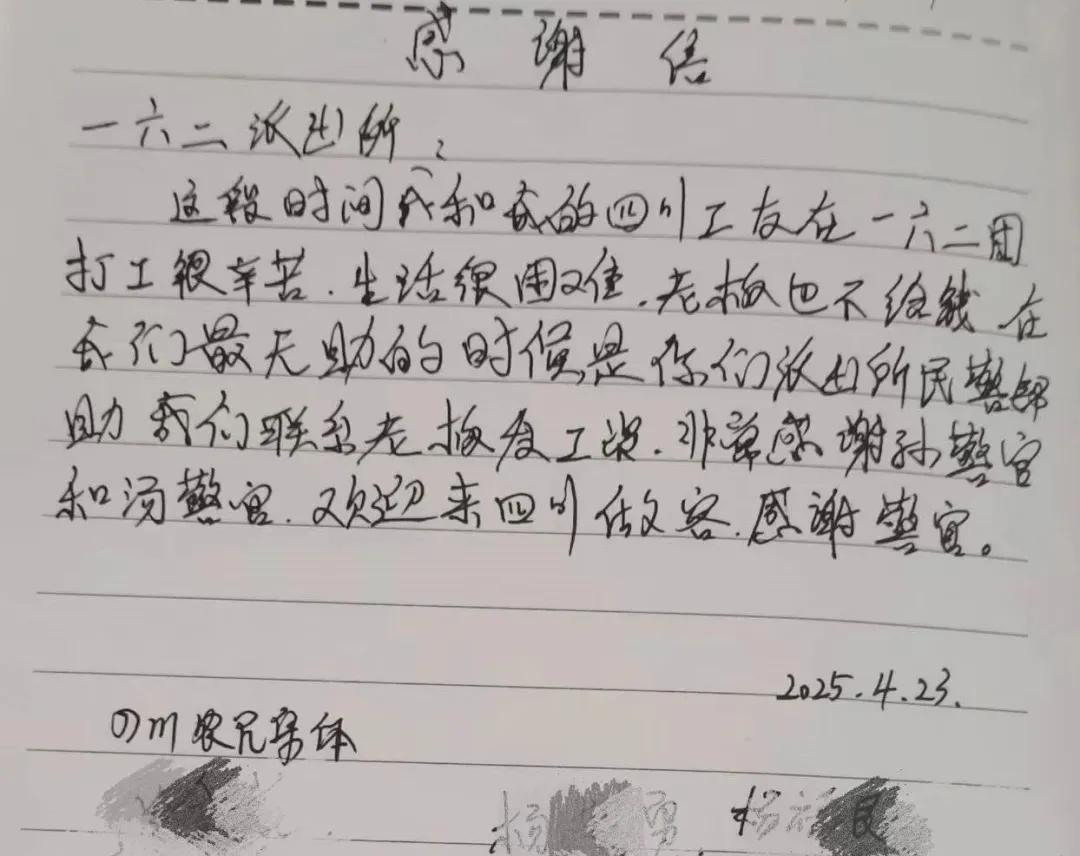 感谢信
一六二派出所:
这段时间我和我的四川工友在一六二团
打工很辛苦.生活很困难.老板也不给钱 在
我们最无助的时候是你们派出所民警帮
助我们联系老板发工资.非常感谢孙警官
和汤警官.欢迎来四川做客.感谢警官。
2025.4.23.
四川农民集体
杨
杨 良